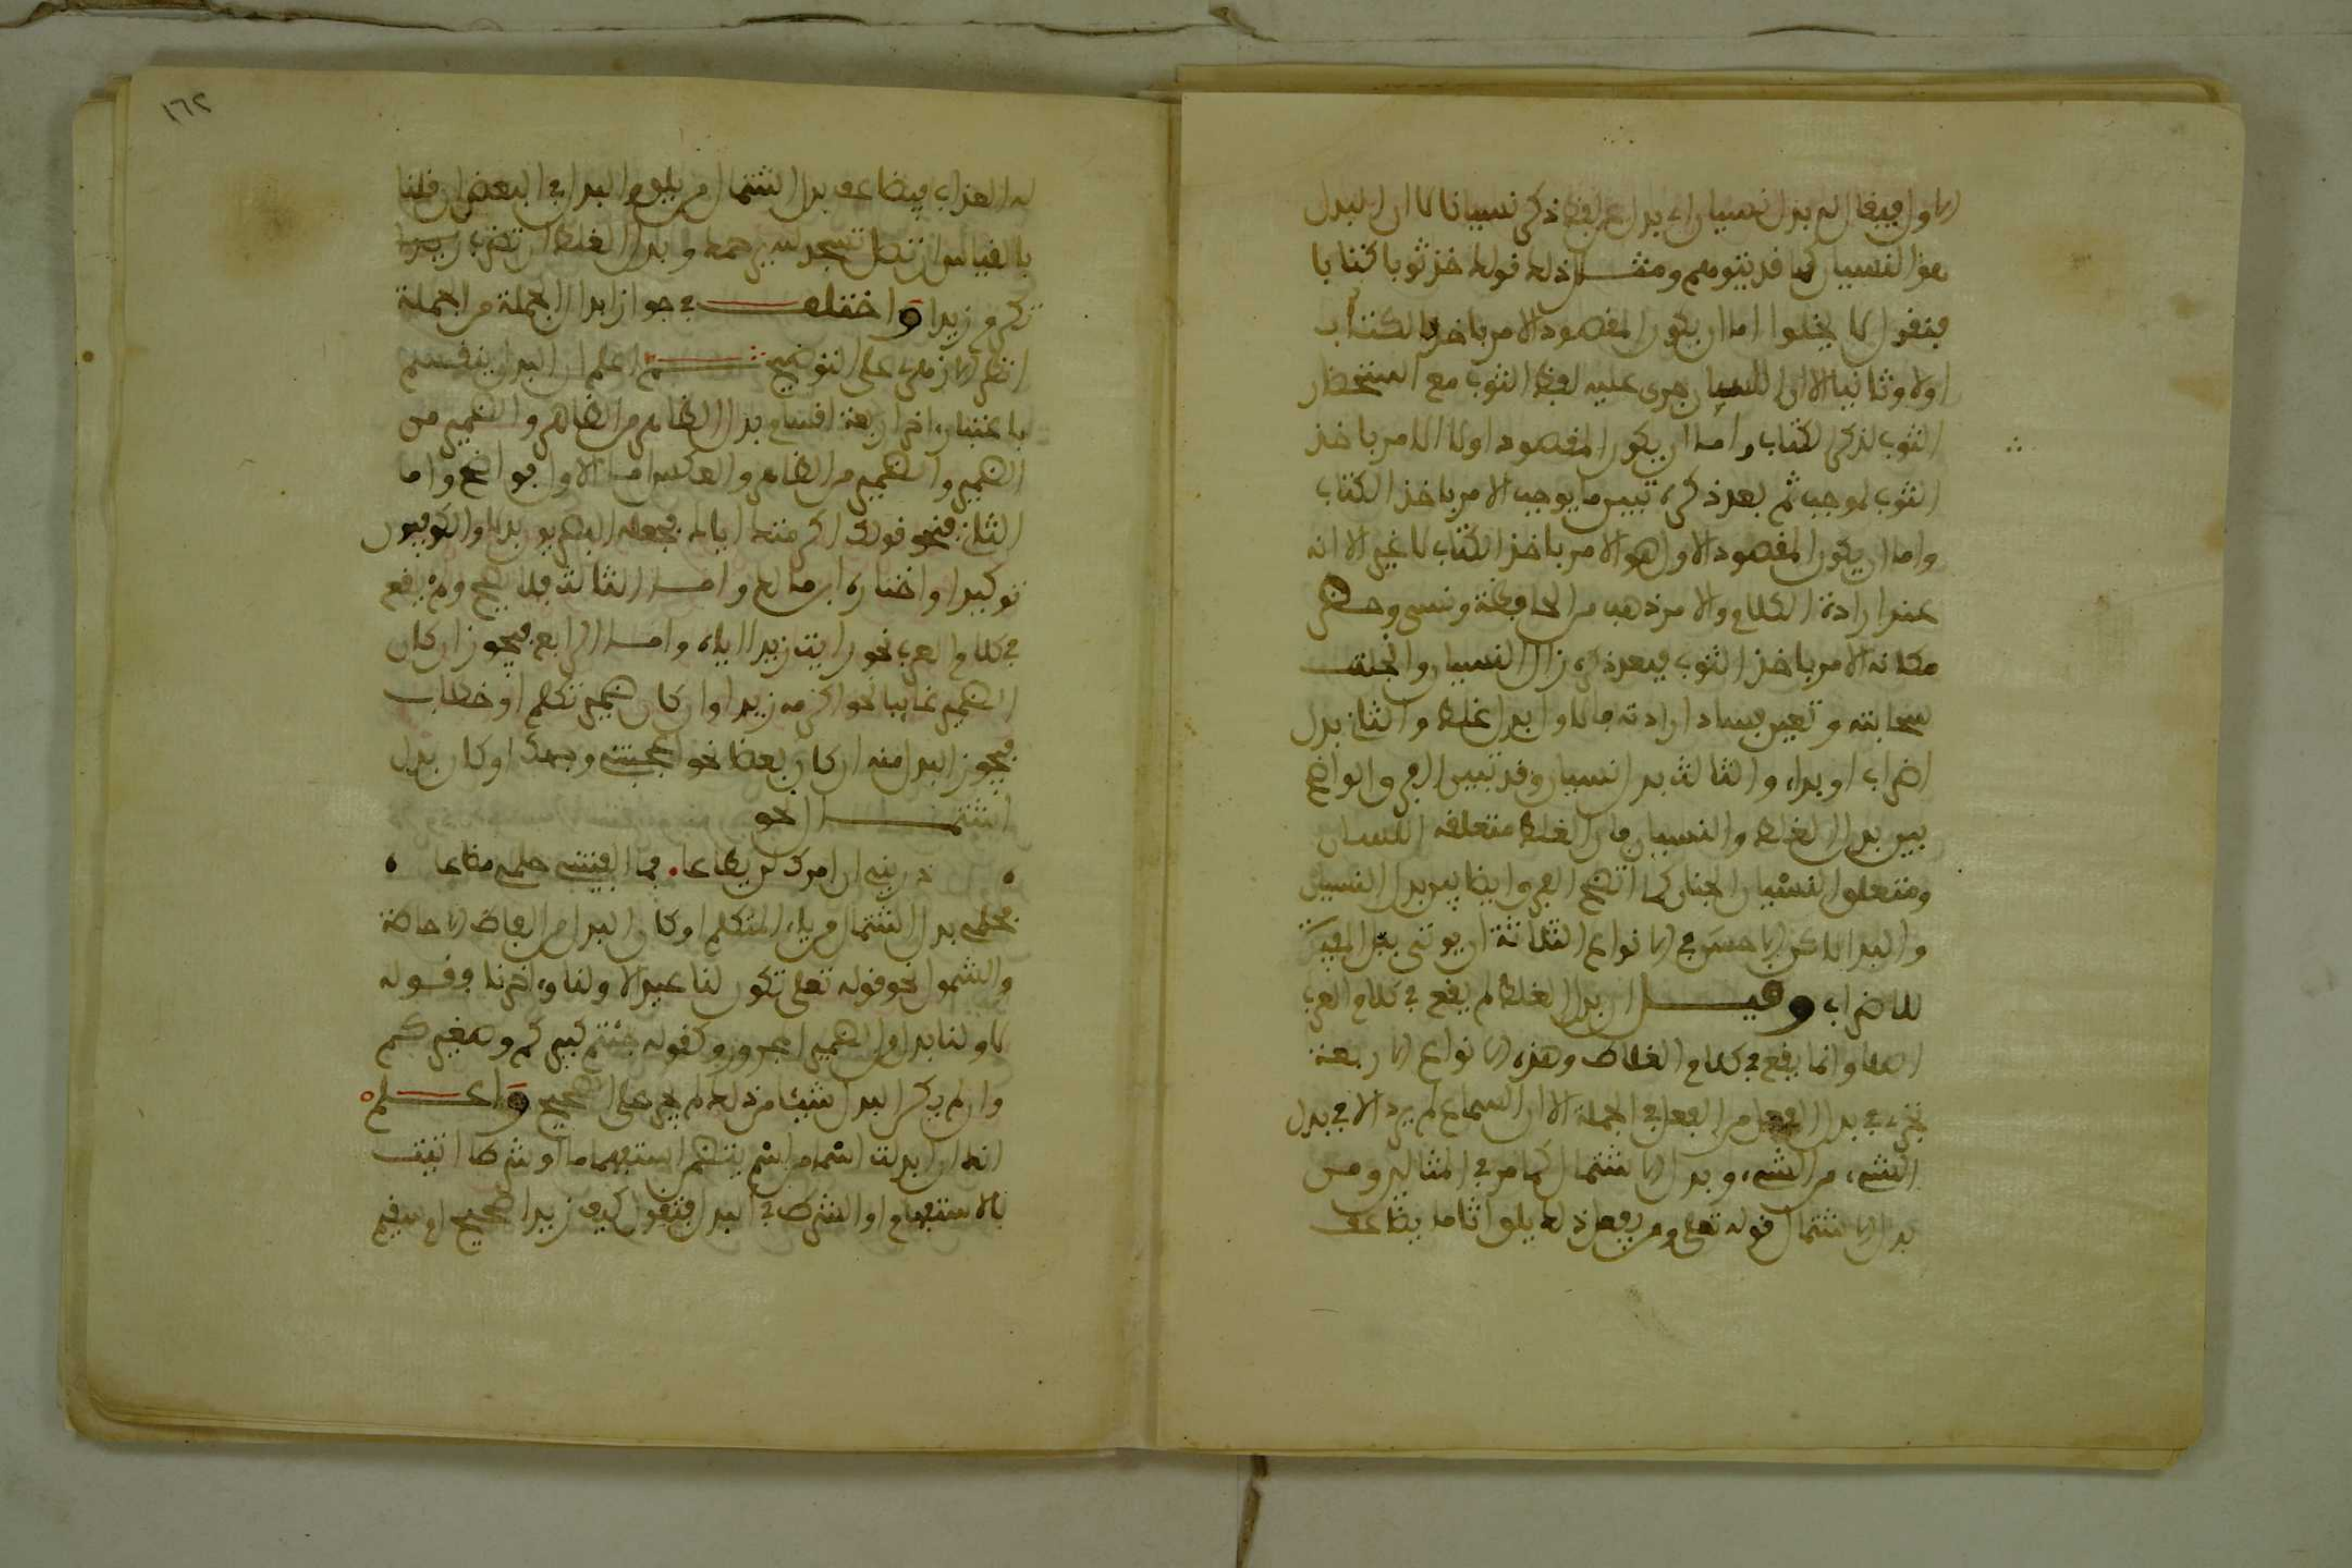 الاول فيقال له بدل نسيان اي بدل عن لفظ ذكر نسيانا لا ان البدل
هو النسيان كما قد يتوهم ومثال ذلك قولك خذ ثوبا كتابا
فنقول لا يخلوا اما ان يكون المقصود الامر باخذ الكتاب
اولا وثانيا الا ان اللسان جرى عليه لفظ الثوب مع استحضار
الثوب لذكر الكتاب واما ان يكون المقصود اولا الامر باخذ
الثوب لموجب ثم بعد ذكره تبين ما يوجب الامر باخذ الكتاب
واما ان يكون المقصود الاول هو الامر باخذ الكتاب لا غير الا انه
عند ارادة الكلام والامر ذهب من الحافظة ونسي وحضر
مكانه الامر باخذ الثوب فبعد ذكره زال النسيان وانجلت
سحابته وتعين فساد ارادته فالاول بدل غلط والثاني بدل
اضراب او بداء والثالث بدل نسيان وقد تبين الفرق الواضح
بين بدل الغلط والنسيان فان الغلط متعلقه اللسان
ومتعلق النسيان الجنان كما اتضح الفرق ايضا بين بدل النسيان
والبدل لاكن الاحسن في الانواع الثلاثة ان يوتى ببل المفيدة
للاضراب وقيل ان بدل الغلط لم يقع في كلام العرب
اصلا وانما يقع في كلام الغلاط وهذه الانواع الاربعة
تجري في بدل الفعل من الفعل في الجملة الا ان السماع لم يرد الا في بدل
الشيء من الشيء وبدل الاشتمال كما مر في المثالين ومن
بدل الاشتمال قوله تعلى ومن يفعل ذلك يلق اثاما يضاعف
له العذاب فيضاعف بدل اشتمال من يلق والبدل في البعض ان قلنا
بالقياس ان تصل تسجد لله يرحمك وبدل الغلط ان تضرب زيدا
تكرم زيدا واختلف في جواز ابدال الجملة من الجملة
انظر الازهري على التوضيح ثم اعلم ان البدل ينقسم
باعتبار اخر اربعة اقسام بدل الظاهر من الظاهر والضمير من
الضمير والضمير من الظاهر والعكس اما الاول فواضح واما
الثاني فنحو قولك اكرمتك اياك فجعله البصريون بدلا والكوفيون
توكيدا واختاره ابن مالك واما الثالث فلا يصح ولم يقع
في كلام العرب نحو رايت زيدا اياه واما الرابع فيجوز ان كان
الضمير غايبا نحو اكرمه زيدا وان كان ضمير تكلم او خطاب
فيجوز البدل منه ان كان بعضا نحو اعجبتني وجهك او كان بدل
اشتمال نحو
ذريني ان امرك لن يطاعا • فما الفيتني حلمي مضاعا •
فحلمي بدل اشتمال من ياء المتكلم او كان البدل افاد الاحاطة
والشمول نحو قوله تعلى تكون لنا عيدا لاولنا واخرنا فقوله
لاولنا بدل من الضمير المجرور وكقوله جئتم كبيركم وصغيركم
وان لم يكن البدل شيئا من ذلك لم يجز على الصحيح واعلم
انك ان ابدلت اسما من اسم يتضمن استفهاما او شرطا اتيت
بالاستفهام او الشرط في البدل فتقول كيف زيدا صحيح ام سقيم
١٦٢